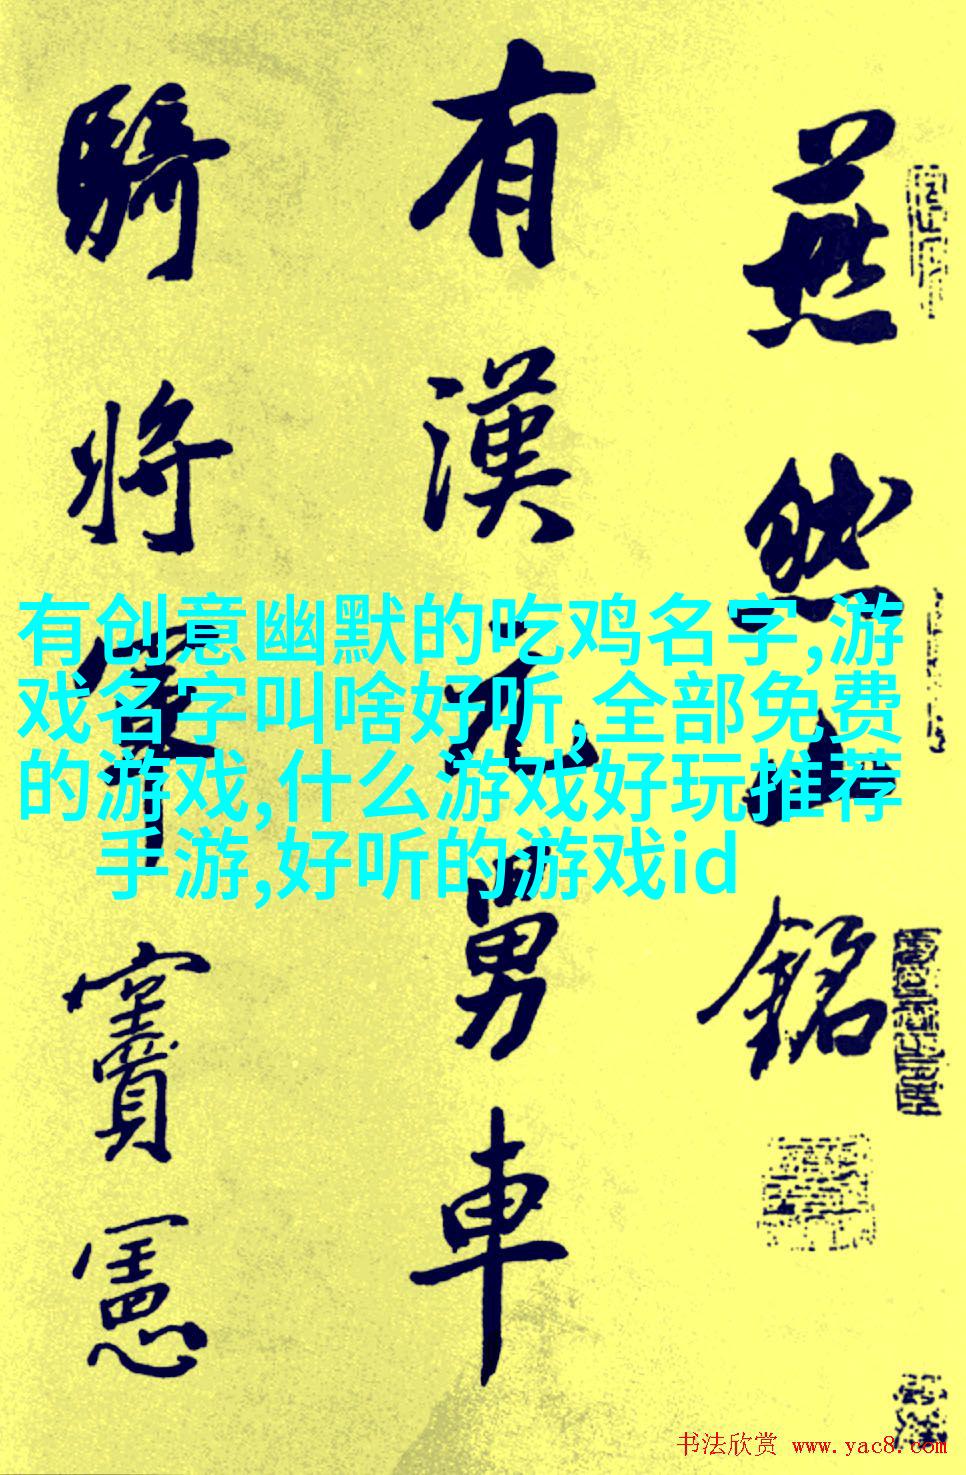 燕然山銘
有漢元舅車
騎將軍竇憲
有创意幽默的吃鸡名字,游
戏名字叫啥好听,全部免费
的游戏,什么游戏好玩推荐
手游,好听的游戏id
书法欣赏 www.yac8.com